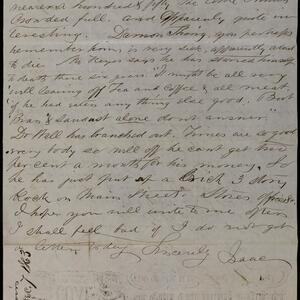 nearer a hundred & fifty. The
Crowded full. and apparently quite in
teresting. Damon Thong, you perhaps
remember him, is very sick, apparently about
to die. Mr Keyes says he has starved himself
to death these six years. It might be all very
well leaving off Tea and Coffee & all meat,
if he had eaten any thing else good. But
Bran & Sawdust alone dont answer"
Dr Wall has branched out. Times are so good
every body so well off he can't get two
per cent a month for his money. So he
has just put up a Brick 3 story
Rook on Main Street. Stores
I hope you will write to me often
I shall feel bad if I do not get
a letter today Sincerely
Isaac
1863